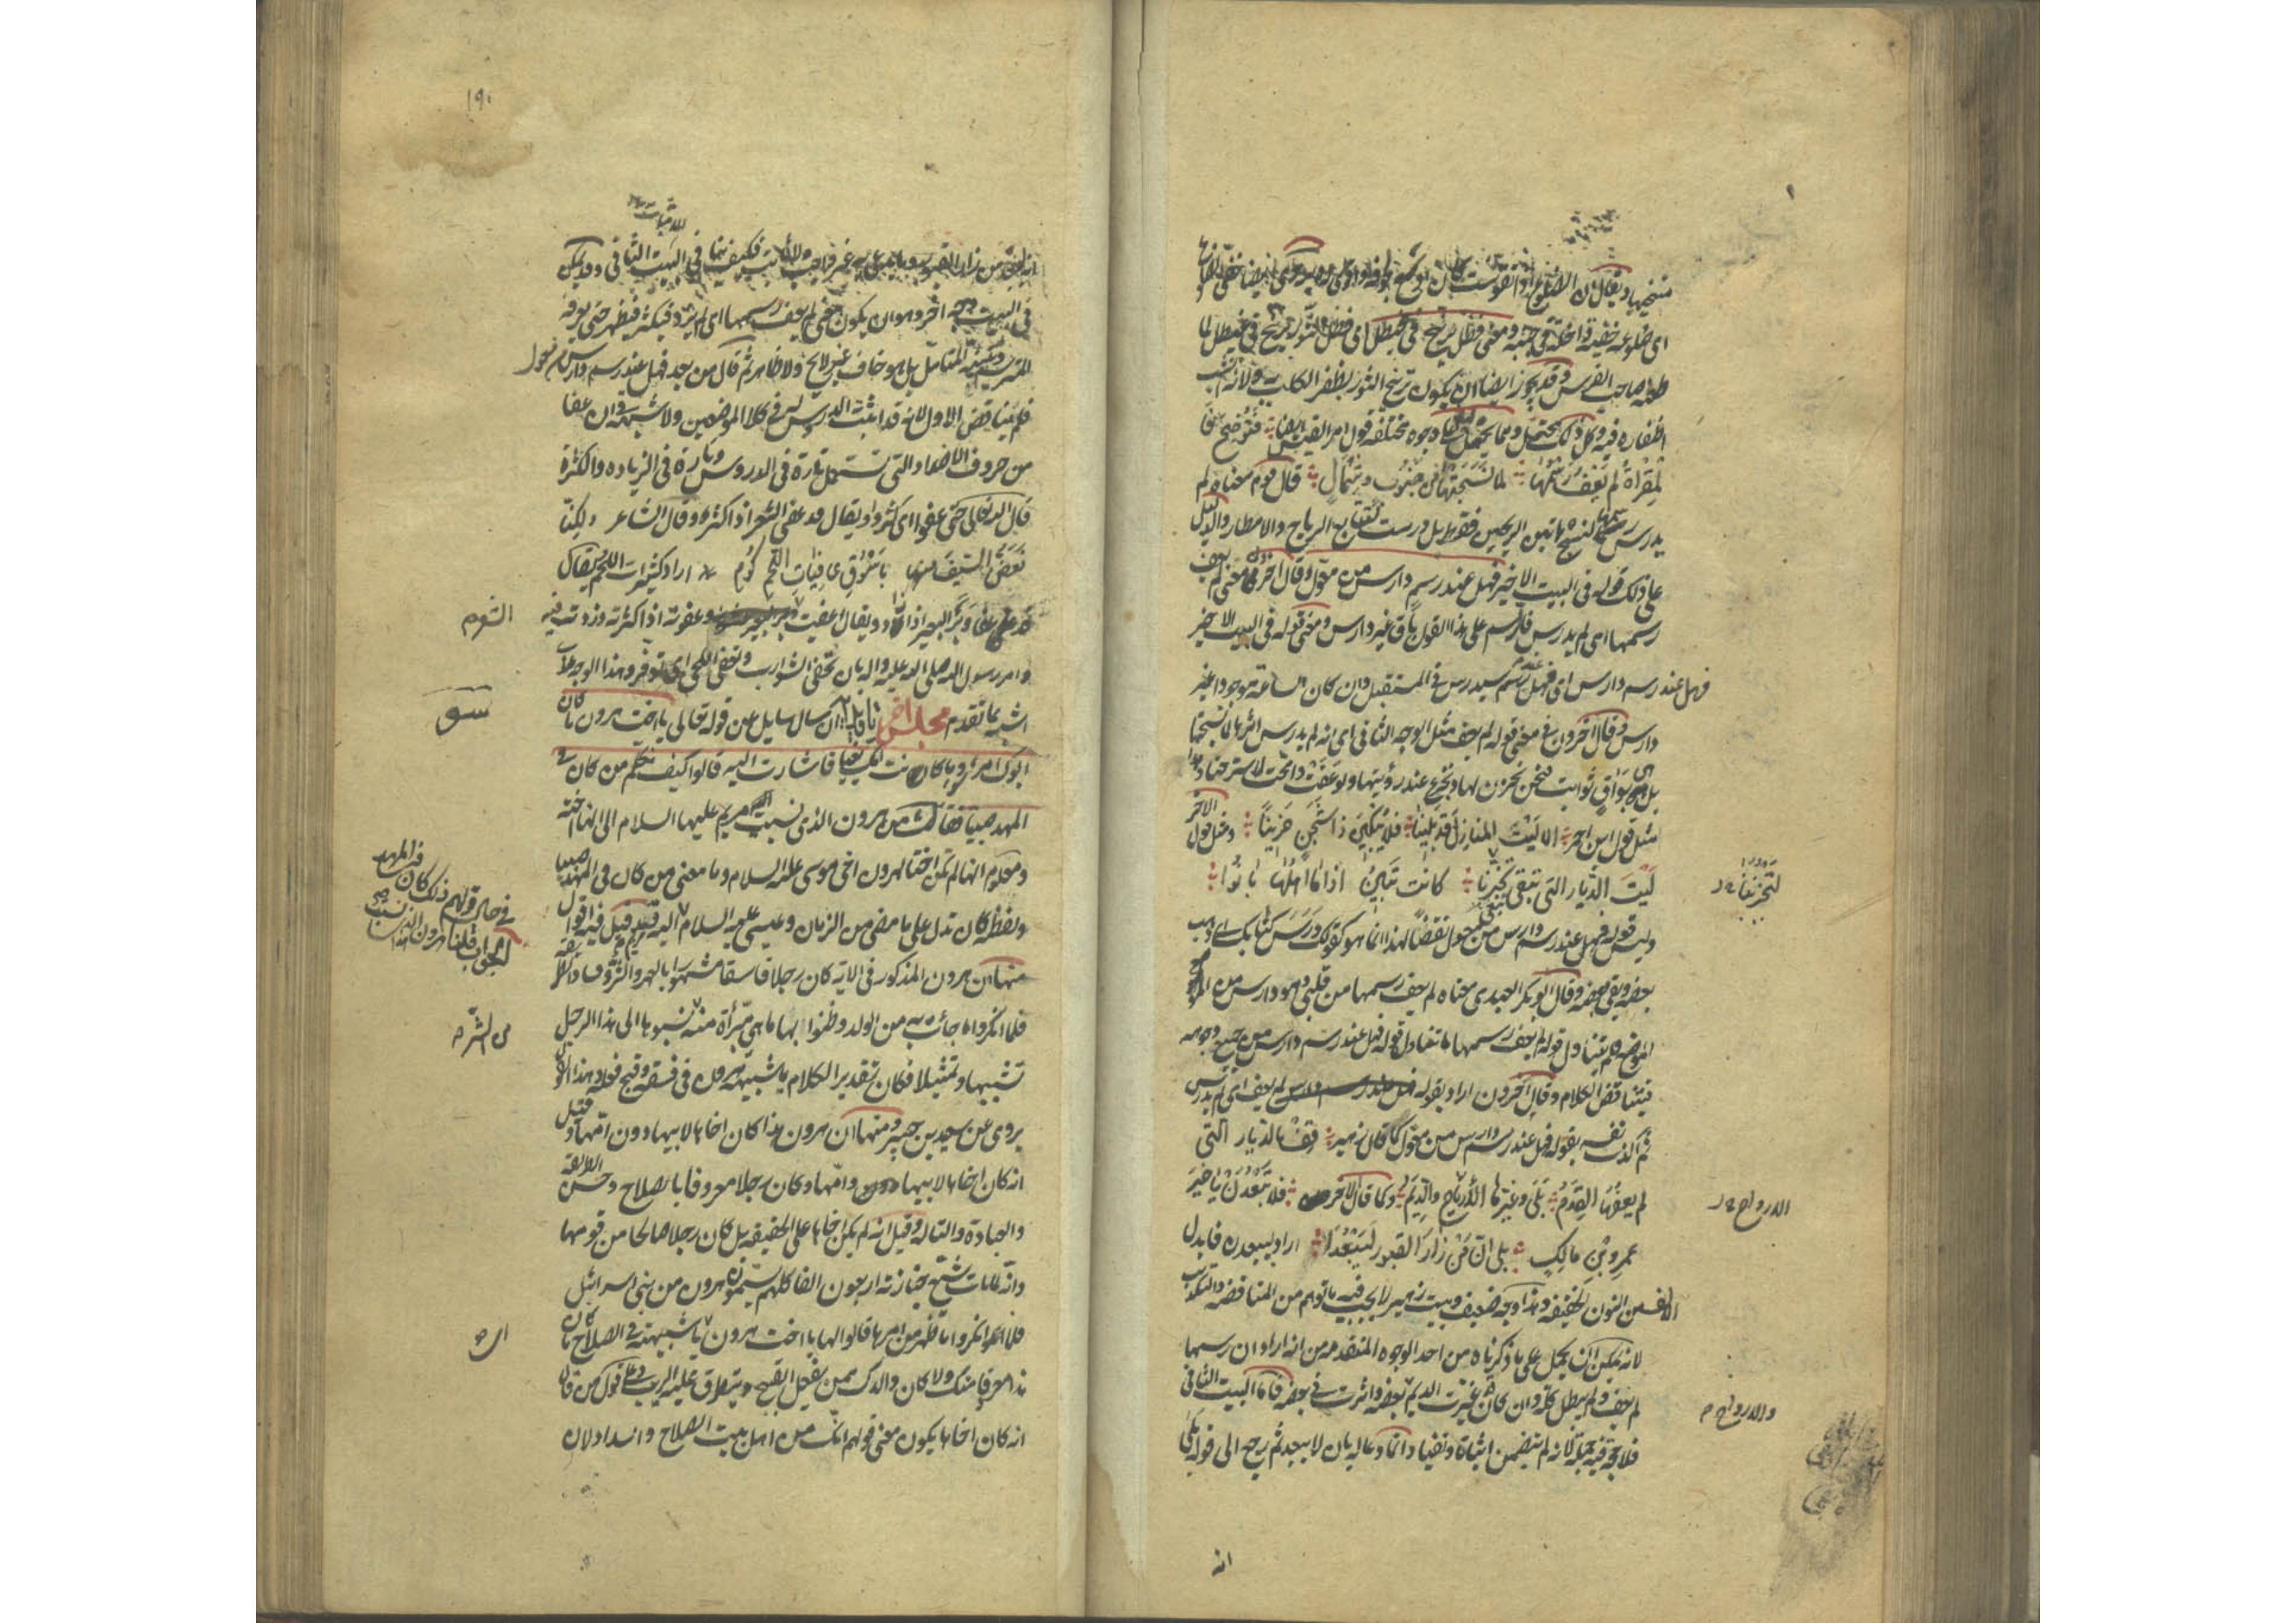 اى ضلوعه خفية داخلة فى جنبه ومعنى فظل يرنح فى غيطل اى فظل الثور يرنح فى غيطل لما
طعنه صاحب الفرس وقد يجوز ايضا ان يكون ترنح الثور لظفر الكلب به ولانه انشب
اظفاره فيه وكل ذلك محتمل ومما يحتمل وجوه مختلفه قول امرء القيس ايضا فتوضح فا
لمقراة لم يعف رسمها لما نسجتها من جنوب وشمال قال قوم معناه لم
يدرس رسمها لنسج هاتين الريحين فقط بل درست لتتابع الرياح والامطار والدليل
على ذلك قوله فى البيت الاخير فهل عند رسم دارس من معول وقال آخرون معنى لم يعف
رسمها اى لم يدرس فالرسم على هذا القول باق غير دارس ومعنى قوله فى البيت الاخير
فهل عند رسم دارس اى فهل عند رسم سيدرس فى المستقبل وان كان الساعة موجودا غير
دارس وقال آخرون فى معنى قوله لم يعف مثل الوجه الثانى اى انه لم يدرس اثرها لما نسجتها
بل هى بواق ثوابت فنحن نحزن لها ونجزع عند رؤيتها ولو عفت وامحت لاسترحنا وهذا
مثل قول ابن احمر الا ليت المنازل قد بلينا فلا يبكين ذا شجن حزينا ومثل قول الآخر
ليت الديار التى تبقى لتحزننا كانت تبين اذا ما اهلها بانوا
لتحزننا
وليس قوله فهل عند رسم دارس من معول نقضا لهذا انما هو كقولك درس كتابك اى ذهب
بعضه وبقى بعضه وقال ابوبكر العبدى معناه لم يعف رسمها من قلبى وهو دارس من الموضع
فلم يتناول قوله لم يعف رسمها ما تناول قوله فهل عند رسم دارس من جميع وجوهه
فيتناقض الكلام وقال آخرون اراد بقوله لم يعف اى لم يدرس
ثم اكذب نفسه بقوله فهل عند رسم دارس من معول كما قال زهير قف بالديار التى
لم يعفها القدم بلى وغيرها الارياح والديم وكما قال الآخر فلا تبعدن يا خير
الارواح
عمرو بن مالك بلى ان من زار القبور ليبعدا اراد ليبعدن فابدل
الالف من النون الخفيفه وهذا وجه ضعيف وبيت زهير لا يجب فيه ما توهم من المناقضه والتكذيب
لانه يمكن ان يحمل على ما ذكرناه من احد الوجوه المتقدمه من انه اراد ان رسمها
لم يعف ولم يبطل كله وان كان قد غيرت الديم بعضه واثرت فى بعضه فاما البيت الثانى
والارواح
فلا حجة فيه لانه لم يتضمن اثباتا ونفيا وانما دعا له بان لا يبعد ثم رجع الى قوله بلى
انه
١٩٠
فى البيت وجه آخر وهو ان يكون معنى لم يعف رسمها اى لم يزد فيكثر فيظهر حتى يعرفه
بل هو خاف غير لايح ولا ظاهر ثم قال من بعد فهل عند رسم دارس من معول
فلم يتناقض الاول لانه قد اثبت الدروس له فى كلا الموضعين ولا شبهة فى ان عفا
من حروف الاضداد التى تستعمل تارة فى الدروس وتارة فى الزياده والكثرة
قال الله تعالى حتى عفوا اى كثروا ويقال قد عفى الشعر اذا كثر وقال الشاعر ولكنا
نعض السيف منها باسوق عافيات اللحم كوم اراد كثيرات اللحم يقال
قد عفا وبر البعير اذا زاد ويقال اعفيت الشعر وعفوته اذا كثرته وزدت فيه
وامر رسول الله صلى الله عليه وآله بان تحفى الشوارب وتعفى اللحى اى توفر وهذا الوجه
اشبه بما تقدم مجلس آخر تاويل آية ان سال سايل عن قوله تعالى يا اخت هرون ما كان
ابوك امرء سوء وما كانت امك بغيا فاشارت اليه قالوا كيف نكلم من كان فى
المهد صبيا فقال من هرون الذى نسبت مريم عليها السلام الى انها اخته
ومعلوم انها لم تكن اختا لهرون اخى موسى عليه السلام وما معنى من كان فى المهد صبيا
ولفظة كان تدل على ما مضى من الزمان وعيسى عليه السلام
منها ان هرون المذكور فى الآية كان رجلا فاسقا مشهورا بالعهر والشر وفساد الطريقه
فلما انكروا ما جائت به من الولد وظنوا بها ما هى مبرأة منه نسبوها الى هذا الرجل
تشبيها وتمثيلا فكان تقدير الكلام يا شبيهة هرون فى فسقه وقبح فعله وهذا القول
يروى عن سعيد بن جبير ومنها ان هرون هذا كان اخاها لابيها دون امها وقيل
انه كان اخاها لابيها وامها وكان رجلا معروفا بالصلاح وحسن الطريقه
والعبادة والتاله وقيل انه لم يكن اخاها على الحقيقه بل كان رجلا صالحا من قومها
وانه لما مات شيع جنازته اربعون الفا كلهم يسمون هرون من بنى اسرائيل
فلما انكروا ما ظهر من امرها قالوا لها يا اخت هرون يا شبيهته فى الصلاح ما كان
هذا معروفا منك ولا كان والدك ممن يفعل القبيح ويتطرق عليه الريب وعلى قول من قال
انه كان اخاها يكون معنى قولهم انك من اهل بيت الصلاح والسداد لان